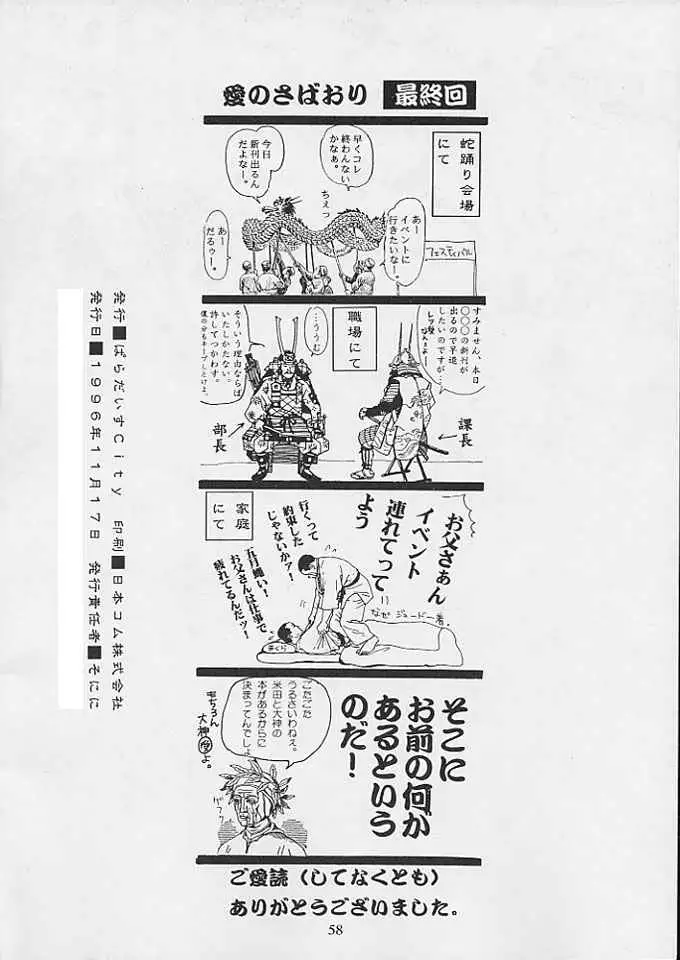 愛のさばおり 最終回
蛇踊り会場
にて
早くコレ
終わんない
かなぁ。
今日
新刊出るん
だよなー。
ちぇっ
あー
イベントに
行きたいなー。
あー
だるぅー。
フェスティバル
職場にて
すみません、本日
〇〇〇の新刊が
出るので早退
したいのですが…
…ううむ
そういう理由ならば
いたしかたない。
許してつかわす。
僕の分もキープしとけよ。
課長
部長
家庭
にて
お父さぁん
イベント
連れてって
よう
行くって
約束した
じゃないかァ!
五月蠅い!
お父さんは仕事で
疲れてるんだッ!
なぜジュードー着。
まくら
そこに
お前の何か
あるという
のだ!
ごたごた
うるさいわねえ。
米田と大神の
本があるからに
決まってんでしょ
もちろん
大神受よ。
ご愛読(してなくとも)
ありがとうございました。
発行■ぱらだいすCity 印刷■日本コム株式会社
発行日■1996年11月17日 発行責任者■そにに
58